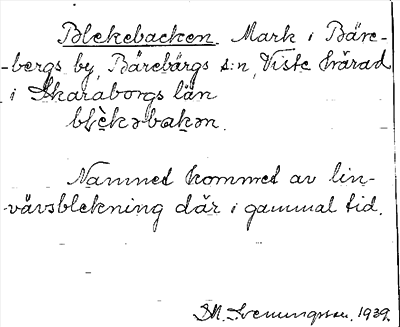 Blekebacken. Mark i Bäre-
-bergs by, Bärebärgs s:n, Viste härad
i Skaraborgs län
blèkəbakən.
Namnet kommet av lin-
-vävsblekning där i gammal tid.
M. Svenungsson. 1939.